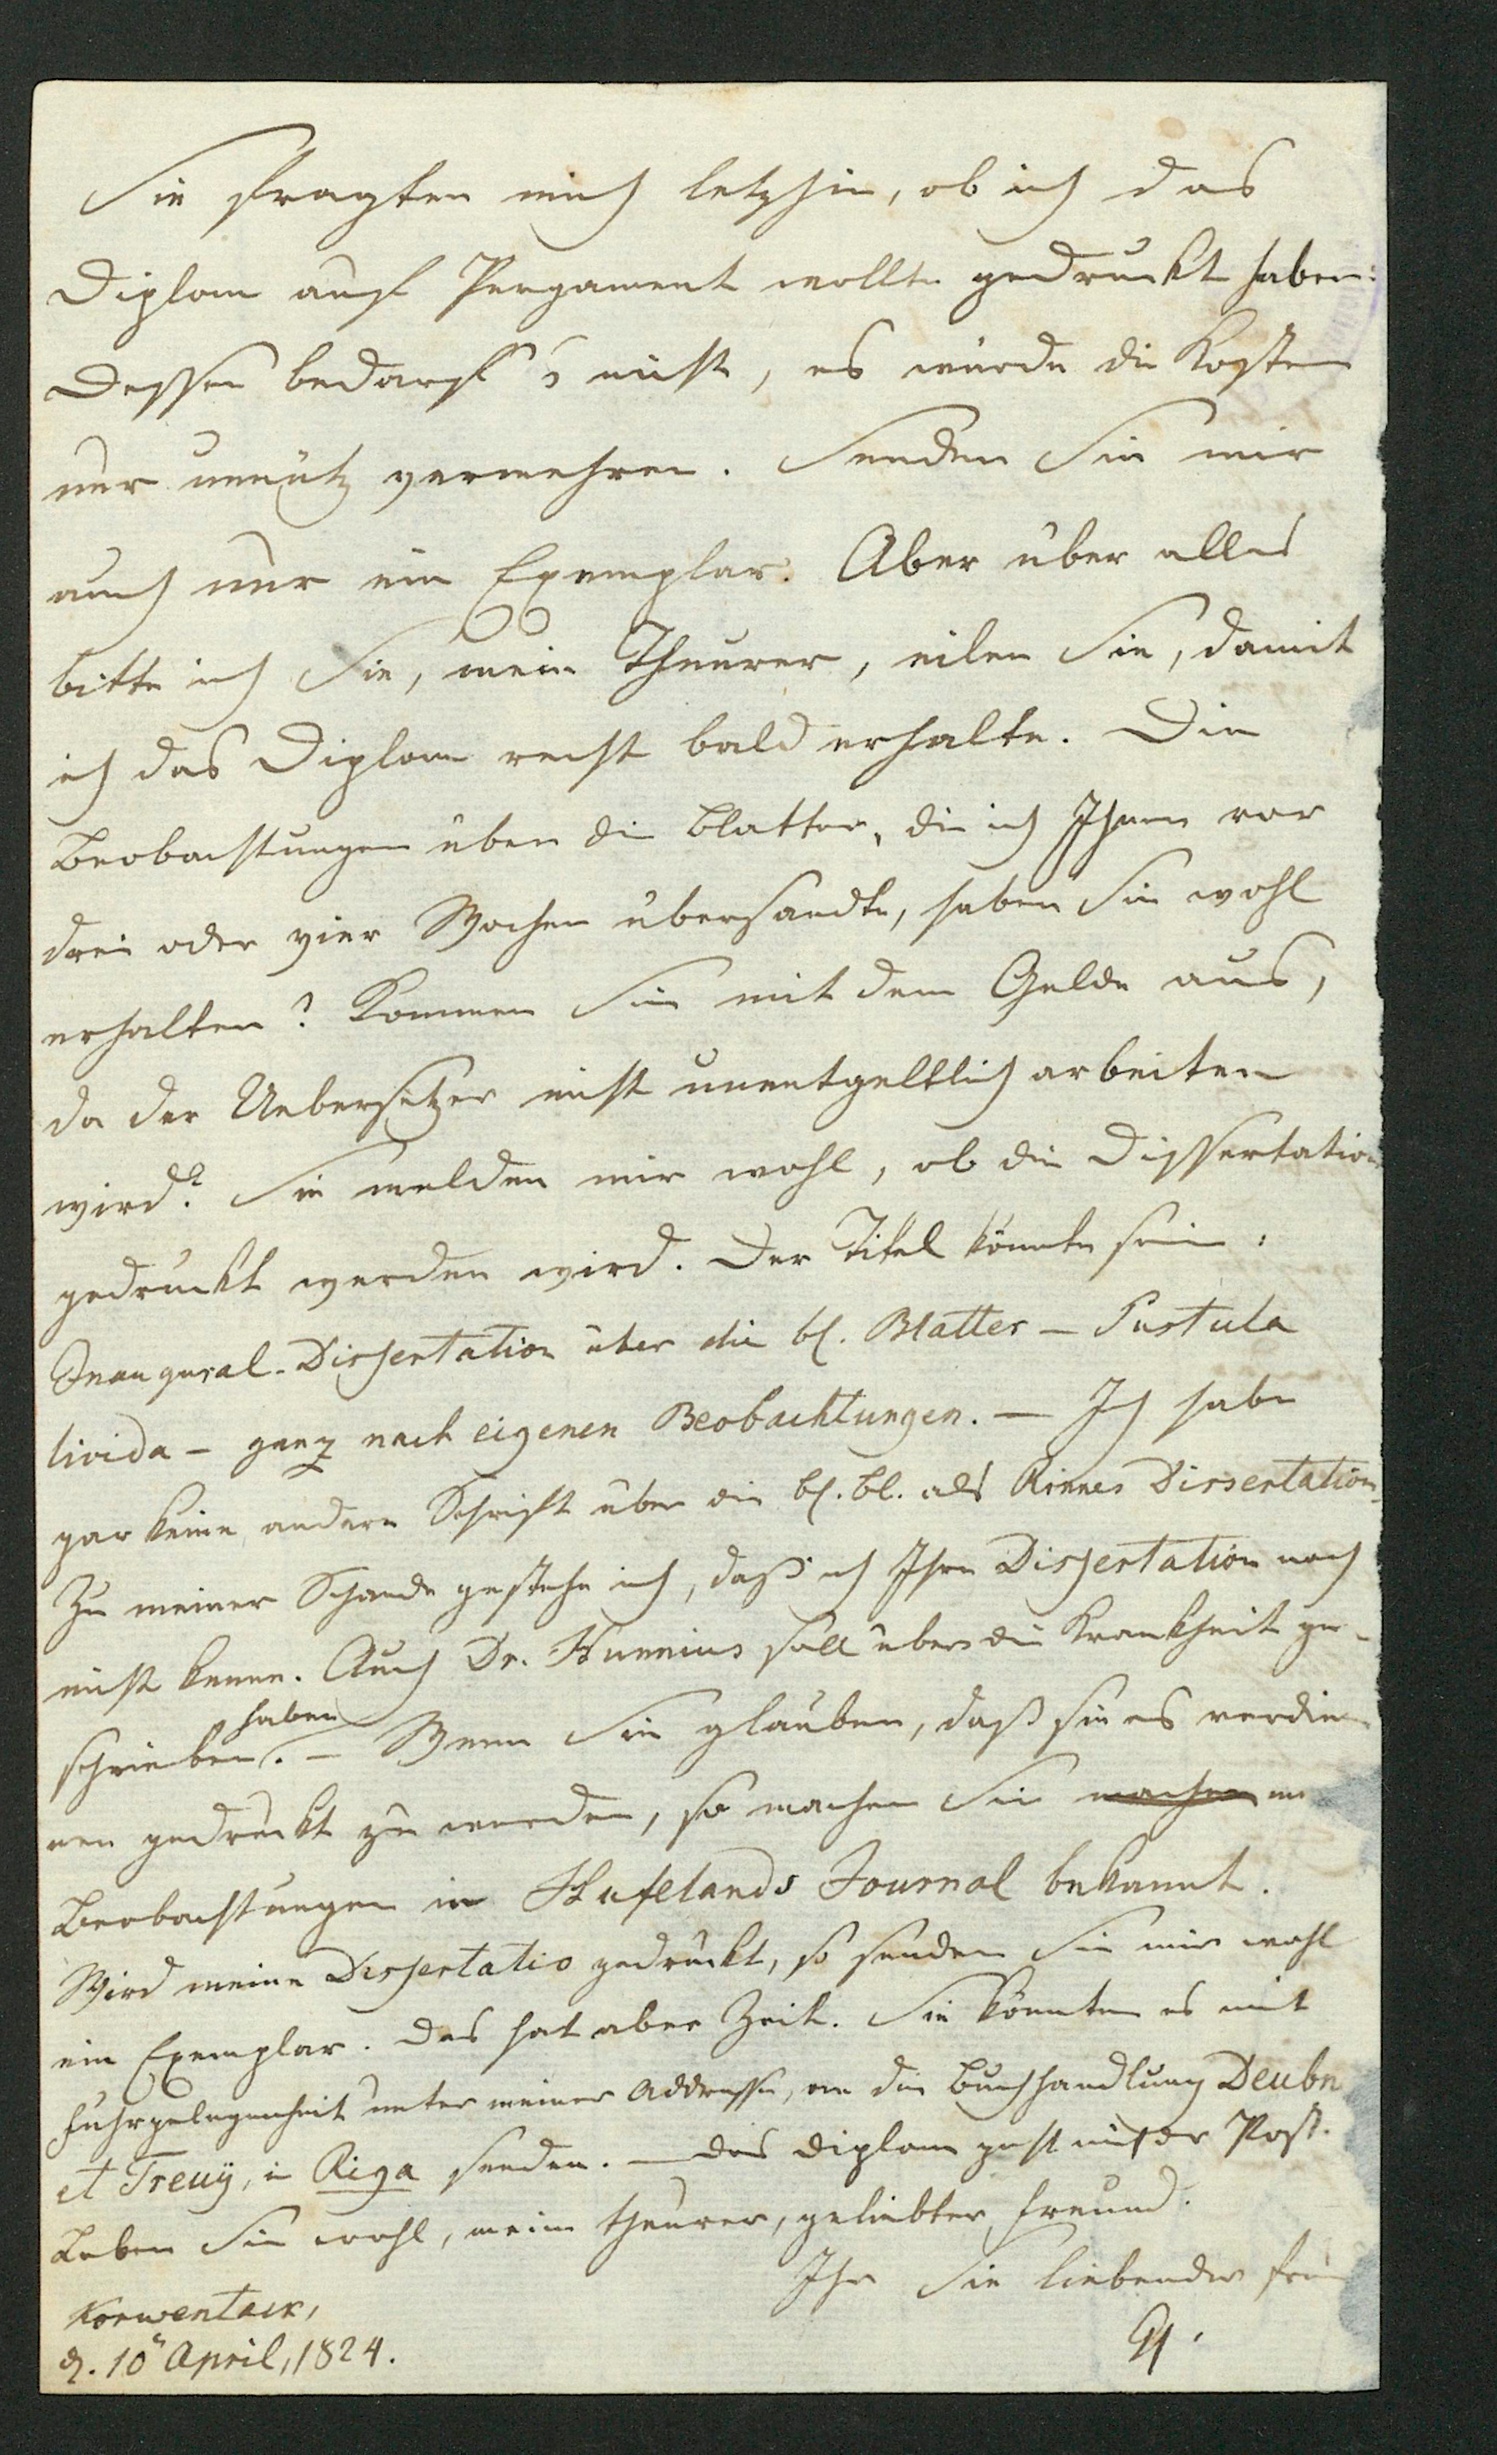 Sie fragten mich letzhin, ob ich das
Diplom auf Pergament wollte gedruckt haben:
Dessen bedarf's nicht, es würde die Kosten
nur unnütz vermehren. Senden Sie mir
auch nur ein Exemplar. Aber über alles
bitte ich Sie, mein Theurer, eilen Sie, damit
ich das Diplom recht bald erhalte. Die
Beobachtungen über die Blatter, die ich Ihnen vor
drei oder vier Wochen übersandte, haben Sie wohl
erhalten? Kommen Sie mit dem Gelde aus,
da der Uebersetzer nicht unentgeltlich arbeiten
wird? Sie melden mir wohl, ob die Dissertation
gedruckt werden wird. Der Titel könnte sein:
Inaugural-Dissertation über die bl. Blatter – Pustula
livida – ganz nach eigenen Beobachtungen. – Ich habe
gar keine andere Schrift über die bl. Bl. als Rinnes Dissertation.
Zu meiner Schande gestehe ich, daß ich Ihre Dissertation noch
nicht kenne. Auch Dr. Hunnius soll über die Krankheit ge-
schrieben haben. – Wenn Sie glauben, daß sie es verdie-
nen gedruckt zu werden, so machen Sie machen
Beobachtungen in Hufelands Journal bekannt.
Wird meine Dissertatio gedruckt, so senden Sie mir wohl
ein Exemplar. Das hat aber Zeit. Sie könnten es mit
Fuhrgelegenheit unter meiner Addresse, an die Buchhandlung Deubn
et Treuÿ, in Riga senden. – Das Diplom geht mit der Post.
Leben Sie wohl, mein theurer, geliebter Freund.
Ihr Sie liebender
Korwentack,
d. 10 April, 1824.